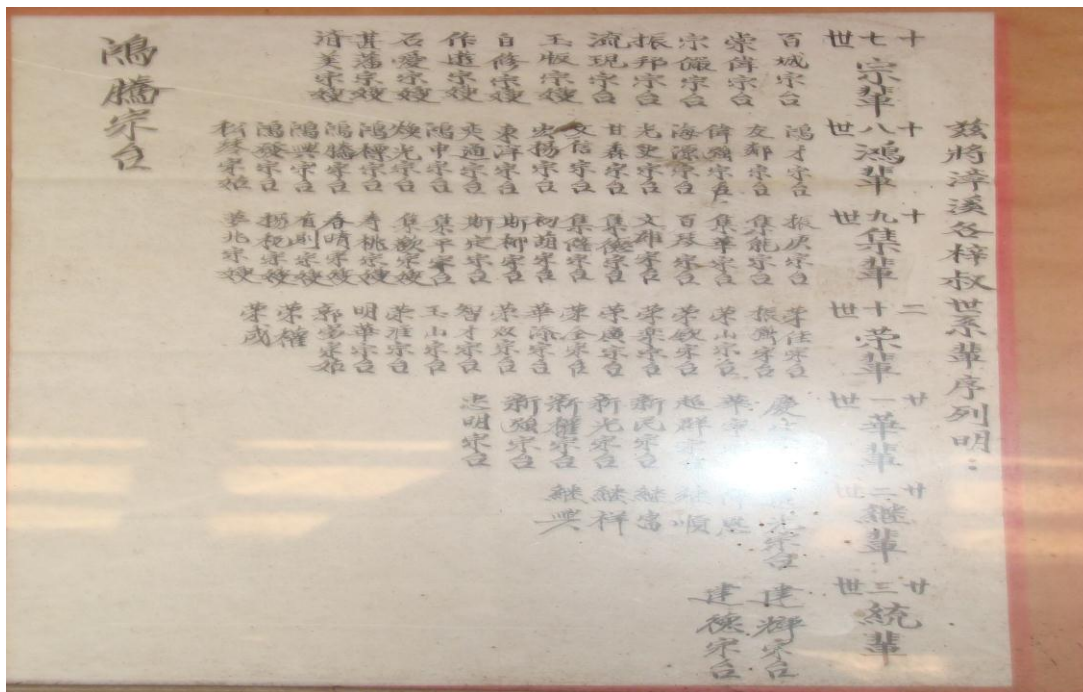 茲將漳溪各梓叔世系輩序列明：
十七世 宗輩
百城宗台
崇偉宗台
宗儼宗台
振邦宗台
流現宗台
玉版宗嫂
自修宗嫂
作遊宗嫂
石愛宗嫂
甚蕩宗嫂
清美宗嫂
十八世 鴻輩
鴻才宗台
友鄰宗台
偉強宗台
海源宗台
光燮宗台
甘霖宗台
文信宗台
宏揚宗台
東洋宗台
奕通宗台
鴻申宗台
煥光宗台
鴻標宗台
鴻騰宗台
鴻興宗台
鴻發宗台
松林宗姬
十九世 集輩
振庚宗台
集龍宗台
集華宗台
百發宗台
文雄宗台
集優宗台
集修宗台
初蔭宗台
斯柳宗台
斯定宗台
集平宗台
集歡宗嫂
壽桃宗嫂
春晴宗嫂
有則宗嫂
揚权宗嫂
華兆宗嫂
二十世 荣輩
荣佳宗台
振齊宗台
荣山宗台
荣欽宗台
荣樂宗台
荣廣宗台
荣全宗台
華添宗台
荣双宗台
智才宗台
玉山宗台
荣旺宗台
明華宗台
荣權
荣成
廿一世 華輩
超群宗
新民宗台
新光宗台
新權宗台
新願宗台
忠明宗台
廿二世 繼輩
宗台
順
継富
継祥
継興
廿三世 統輩
建輝宗台
建德宗台
鴻騰宗台